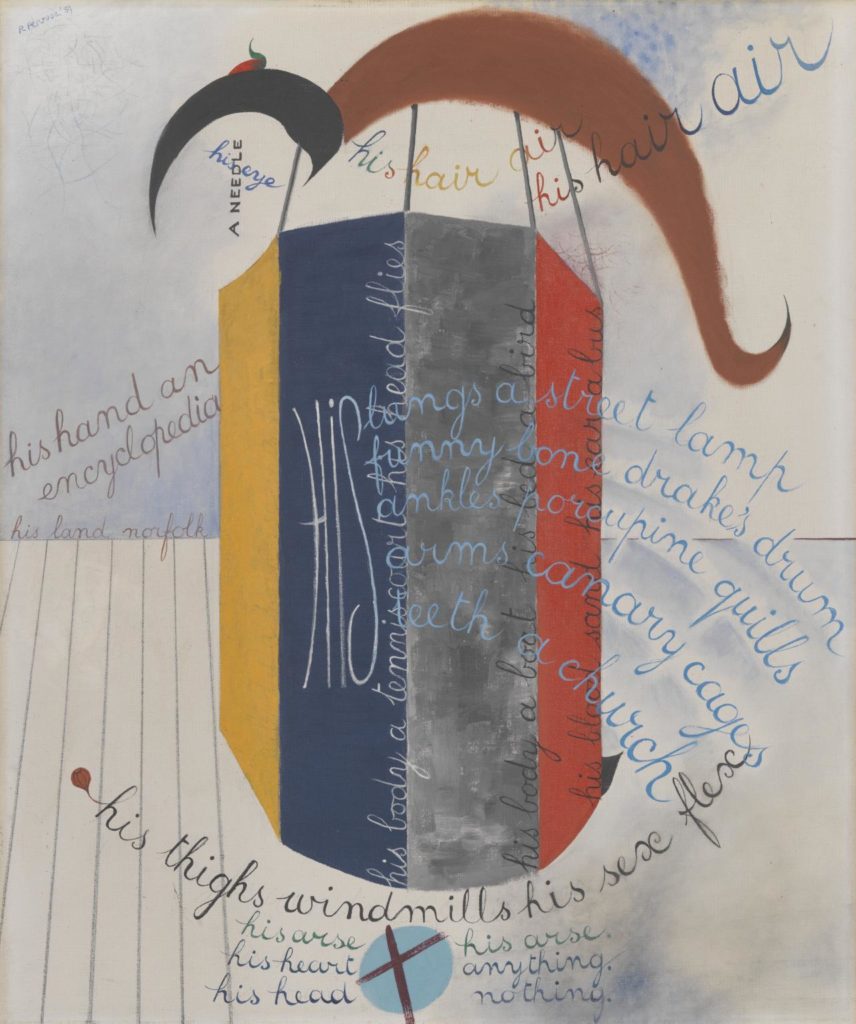 R Penrose '39
his hair air
his hair air
his eye
A NEEDLE
his hand an
encyclopedia
his land norfolk
HIS
lungs a street lamp
funny bone drake's drum
ankles porcupine quills
arms canary cages
teeth a church
his body a tennis court his head flies
his body a boot his bed a bird
his sand his a bus
his thighs windmills his sex flex.
his arse his arse.
his heart anything.
his head nothing.